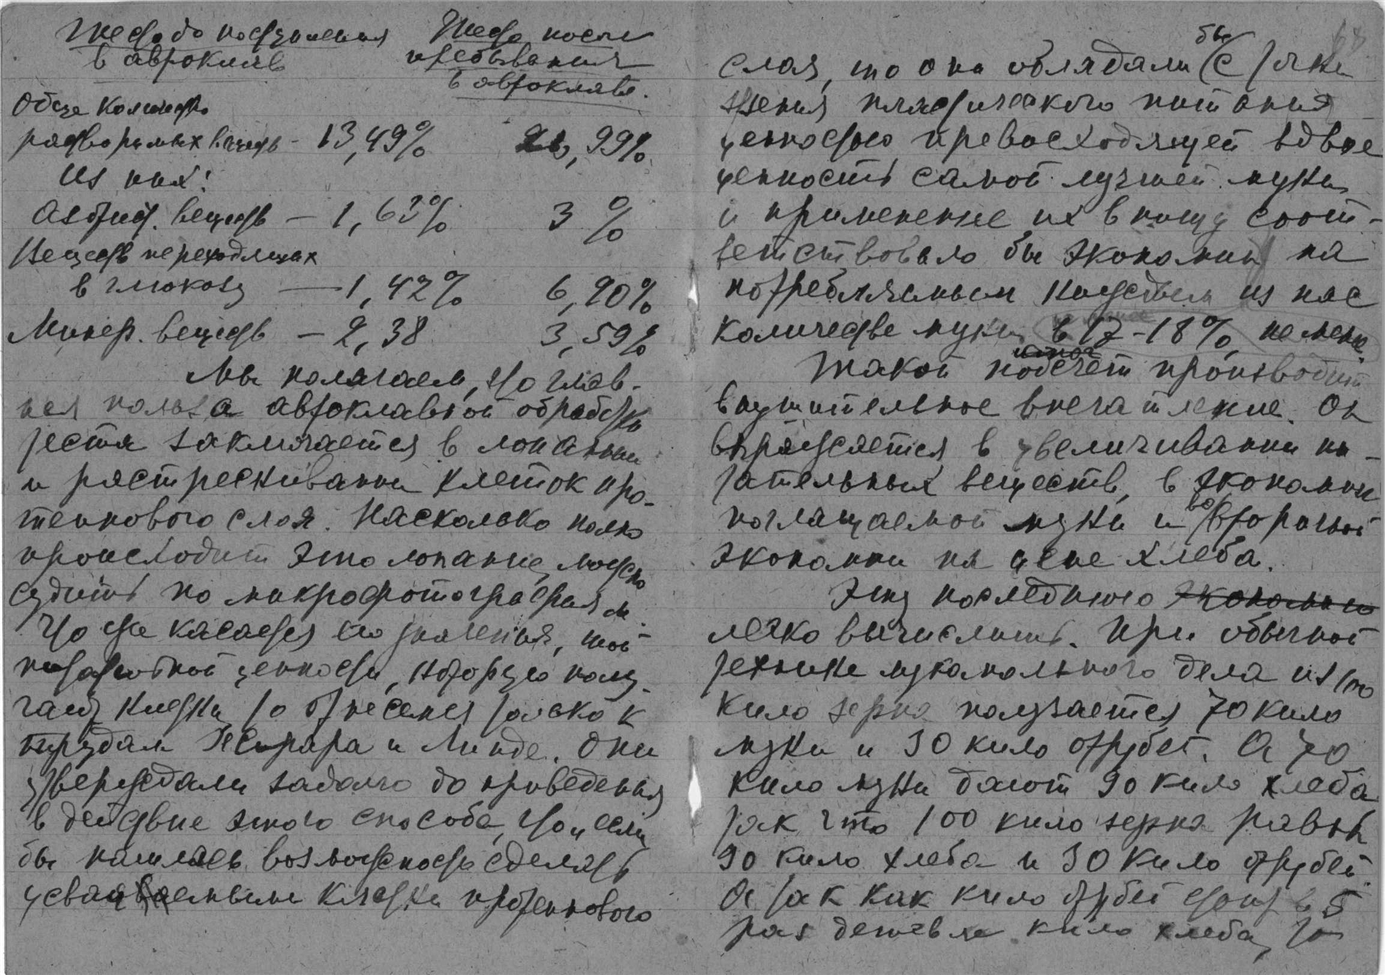 Тесто до поступления
в автоклав
Тесто после
пребывания
в автоклаве.
Общее количество
растворимых веществ - 13,49% ,99%
Из них:
Азотист. веществ - 1,63% 3 %
Веществ переходящих
в глюкозу - 1,42% 6,90%
Минер. веществ - 2,38 3,59%
Мы полагаем, что глав-
ная польза автоклавной обработки
теста заключается в лопании
и растрескивании клеток про-
теинового слоя. Насколько полно
происходит это лопание, можно
судить по микрофотографиям.
Что же касается его значения, той
питательной ценности, которую полу-
чают клетки, то отнесемся только к
трудам и Линде. Они
утверждали задолго до приведения
в действие этого способа, что если
бы нашлась возможность сделать
усваиваемыми клетки протеинового
слоя, то они обладали бы с точки
зрения пластического питания
ценностью превосходящей вдвое
ценность самой лучшей муки
и применение их в пищу соот-
ветствовало бы экономии на
потребляемом из нас
количестве муки в 17-18% не менее
Такой подсчет производит
внушительное впечатление. Он
выражается в увеличивании пи-
тательных веществ, в экономии
поглащаемой муки и во вторичной
экономии на цене хлеба.
Эту последнюю экономию
легко вычислить. При обычной
технике мукомольного дела из 100
кило зерна получается 70 кило
муки и 30 кило отрубей. А 70
кило муки дают 90 кило хлеба
так что 100 кило зерна равны
90 кило хлеба и 30 кило отрубей.
А так как кило отрубей стоит в 5
раз дешевле кило хлеба, то